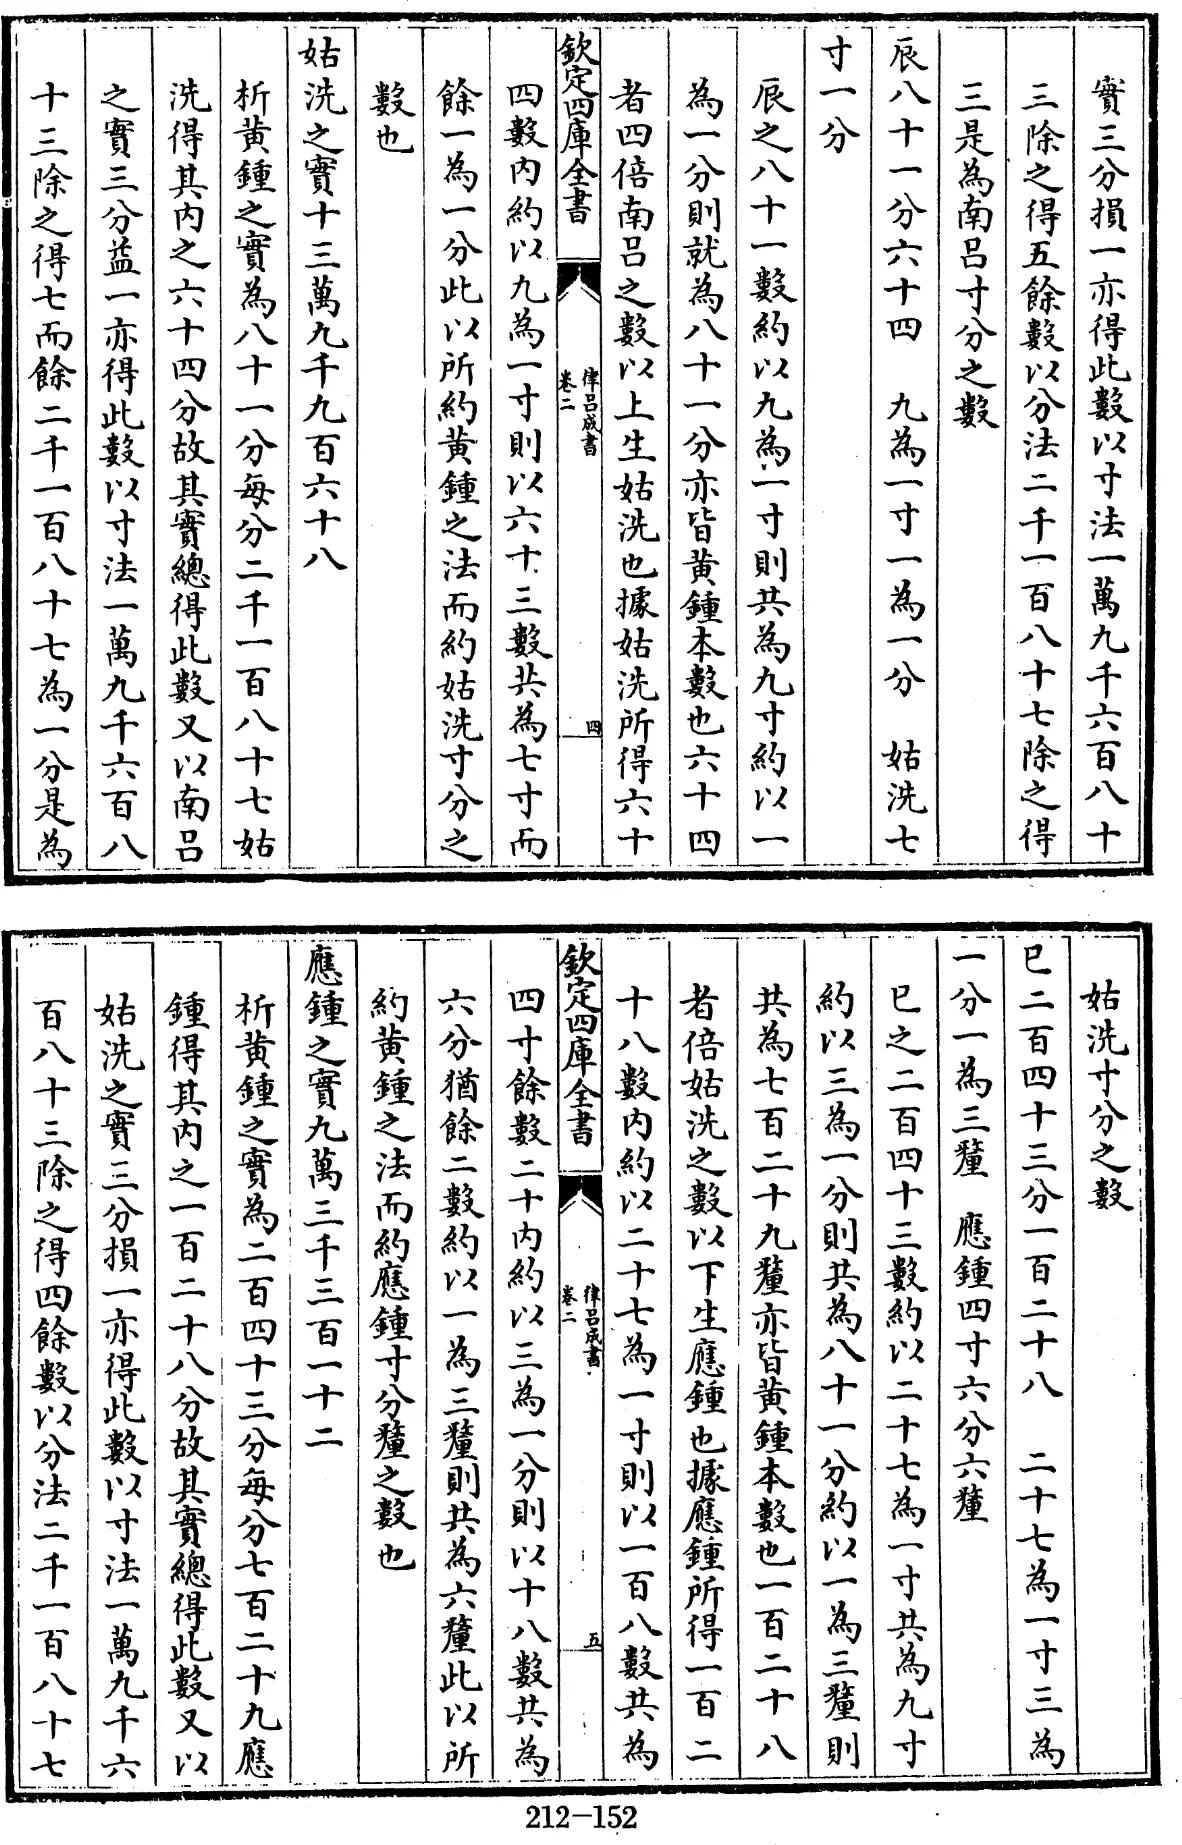 實三分損一亦得此數以寸法一萬九千六百八十
三除之得五餘數以分法二千一百八十七除之得
三是為南呂寸分之數
辰八十一分六十四　九為一寸一為一分　姑洗七
寸一分
辰之八十一數約以九為一寸則共為九寸約以一
為一分則就為八十一分亦皆黄鍾本數也六十四
者四倍南呂之數以上生姑洗也據姑洗所得六十
欽定四庫全書
律呂成書
卷二
四
四數内約以九為一寸則以六十三數共為七寸而
餘一為一分此以所約黄鍾之法而約姑洗寸分之
數也
姑洗之實十三萬九千九百六十八
析黄鍾之實為八十一分每分二千一百八十七姑
洗得其内之六十四分故其實總得此數又以南呂
之實三分益一亦得此數以寸法一萬九千六百八
十三除之得七而餘二千一百八十七為一分是為
姑洗寸分之數
巳二百四十三分一百二十八　二十七為一寸三為
一分一為三釐　應鍾四寸六分六釐
巳之二百四十三數約以二十七為一寸共為九寸
約以三為一分則共為八十一分約以一為三釐則
共為七百二十九釐亦皆黄鍾本數也一百二十八
者倍姑洗之數以下生應鍾也據應鍾所得一百二
十八數内約以二十七為一寸則以一百八數共為
欽定四庫全書
律呂成書
卷二
五
四寸餘數二十内約以三為一分則以十八數共為
六分猶餘二數約以一為三釐則共為六釐此以所
約黄鍾之法而約應鍾寸分釐之數也
應鍾之實九萬三千三百一十二
析黄鍾之實為二百四十三分每分七百二十九應
鍾得其内之一百二十八分故其實總得此數又以
姑洗之實三分損一亦得此數以寸法一萬九千六
百八十三除之得四餘數以分法二千一百八十七
212-152